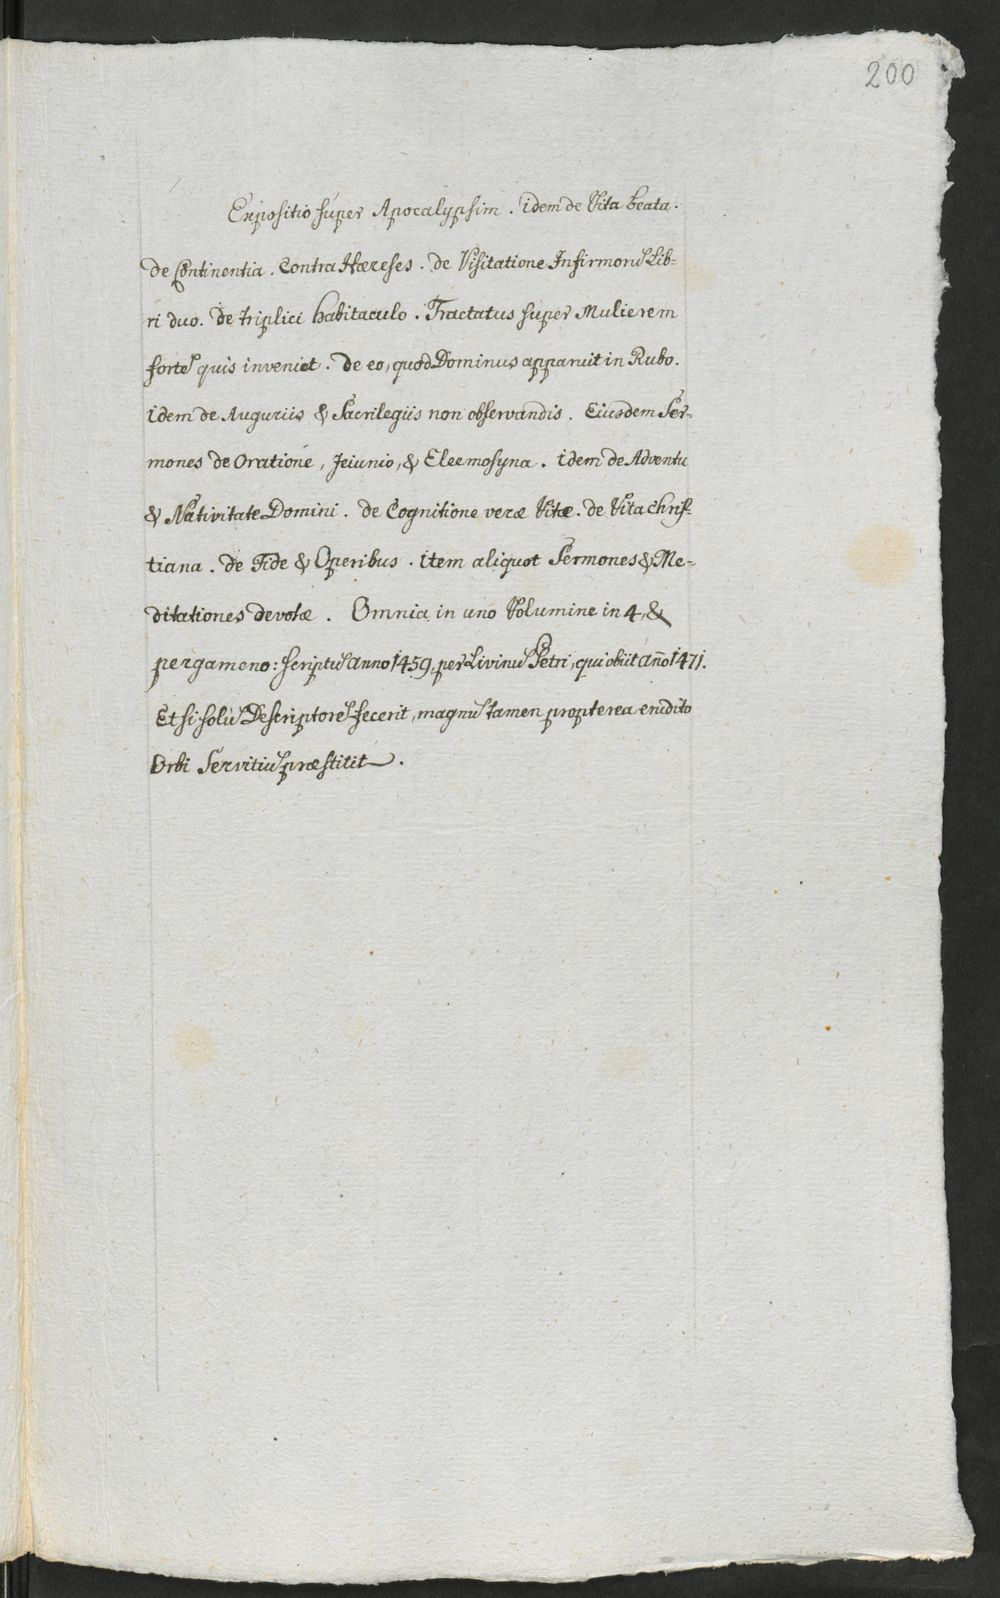 200
Expositio super Apocalypsim. idem de Vita beata.
de Continentia. Contra Hæreses. de Visitatione Infirmorũ Lib-
ri duo. de triplici habitaculo. Tractatus super Mulierem
fortẽ quis inveniet. de eo, quod Dominus apparuit in Rubo.
idem de Auguriis & Sacrilegiis non observandis. Eiusdem Ser-
mones de Oratione, Jeiunio, & Eleemosyna. idem de Adventu
& Nativitate Domini. de Cognitione veræ Vitæ. de Vita Chris-
tiana. de Fide & Operibus. item aliquot Sermones & Me-
ditationes devotæ. Omnia in uno Volumine in 4, &
pergameno: scriptũ anno 1459, per Livinũ Petri, qui obiit año 1471.
Etsi solũ Descriptorẽ fecerit, magnũ tamen propterea erudito
Orbi Servitiũ præstitit.